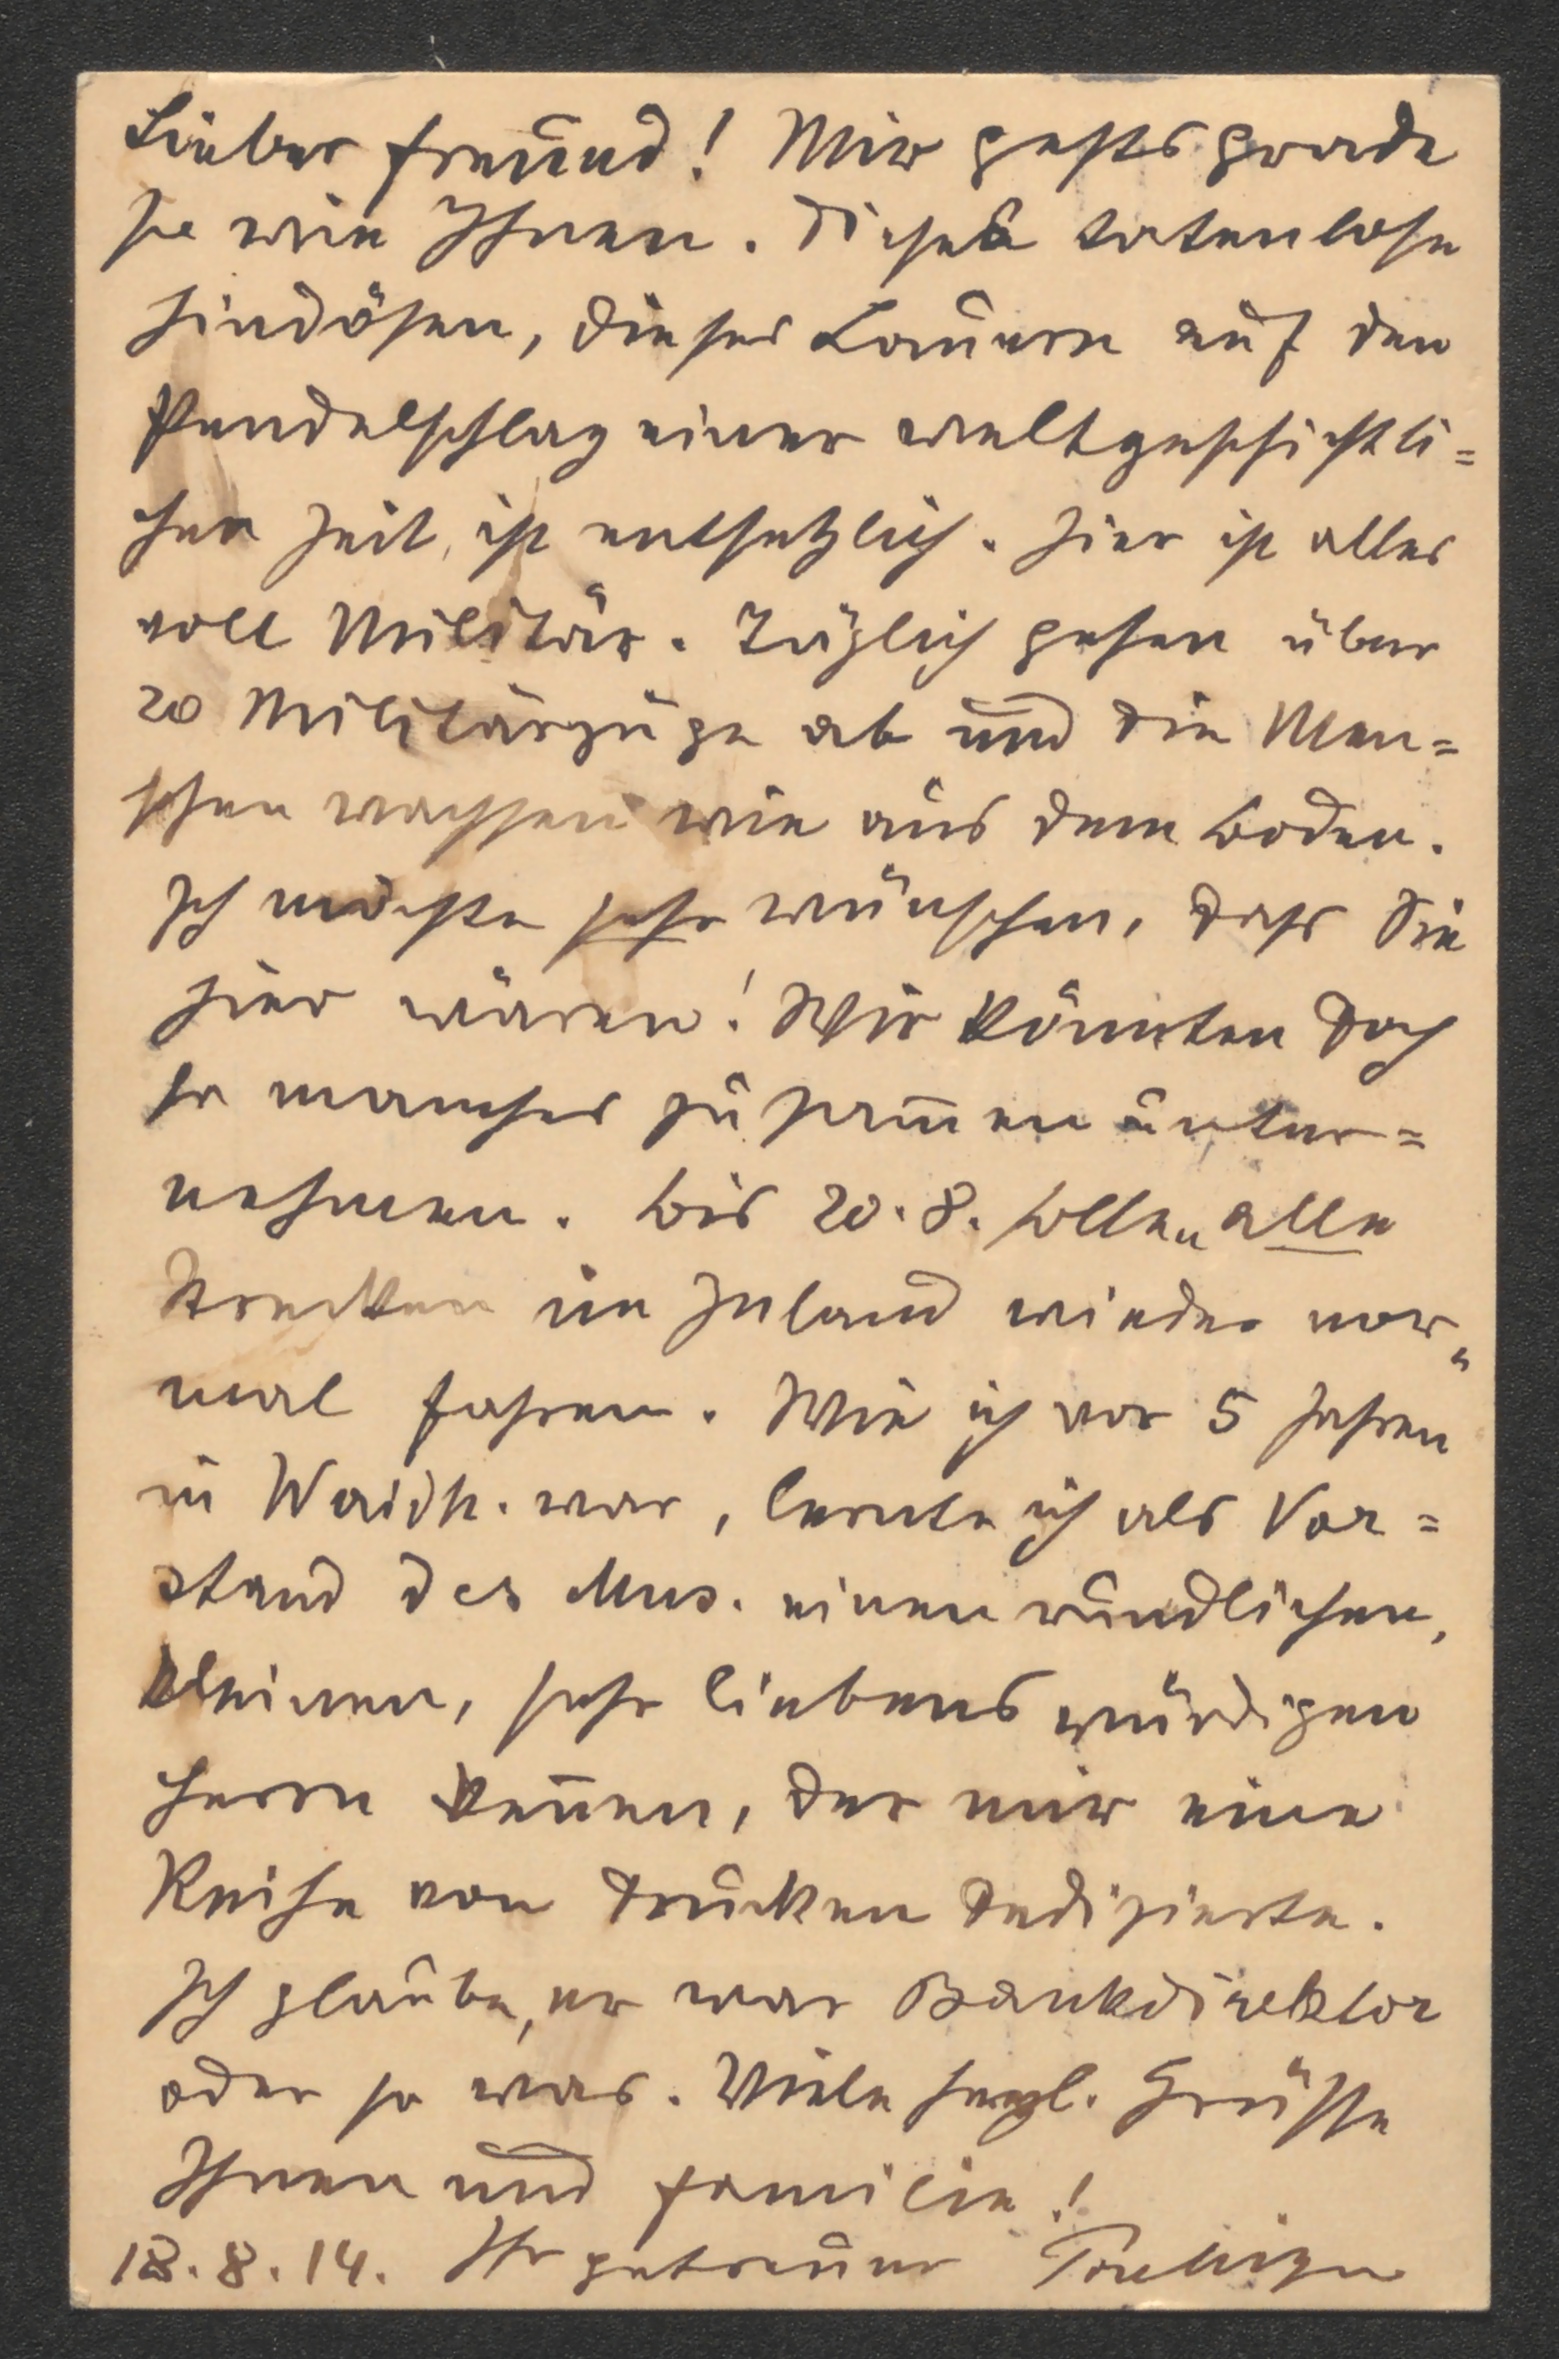 Lieber Freund! Mir gehts grade
so wie Ihnen. Dieses tatenlose
Hindösen, dieses Lauern auf den
Pendelschlag einer weltgeschichtli=
chen Zeit, ist entsetzlich. Hier ist alles
voll Militär. Täglich gehen über
20 Militärzüge ab und die Men=
schen wachsen wie aus dem Boden.
Ich möchte sehr wünschen, dass Sie
hier wären! Wir könnten doch
so manches zusammen unter=
nehmen. Bis 20. 8. sollen alle
Strecken im Inland wieder nor=
mal fahren. Wie ich vor 5 Jahren
in Waidh. war, lernte ich als Vor=
stand des Mus. einen rundlichen,
kleinen, sehr liebenswürdigen
Herrn kennen, der mir eine
Reihe von Drucken dedizierte.
Ich glaube, er war Bankdirektor
oder so was. Viele herzl. Grüsse
Ihnen und Familie!
18. 8. 14. Ihr getreuer